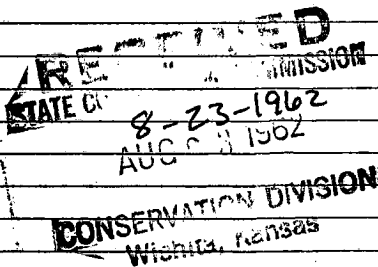 RECEIVED
STATE COMMISSION
8-23-1962
AUG 1962
CONSERVATION DIVISION
Wichita, Kansas